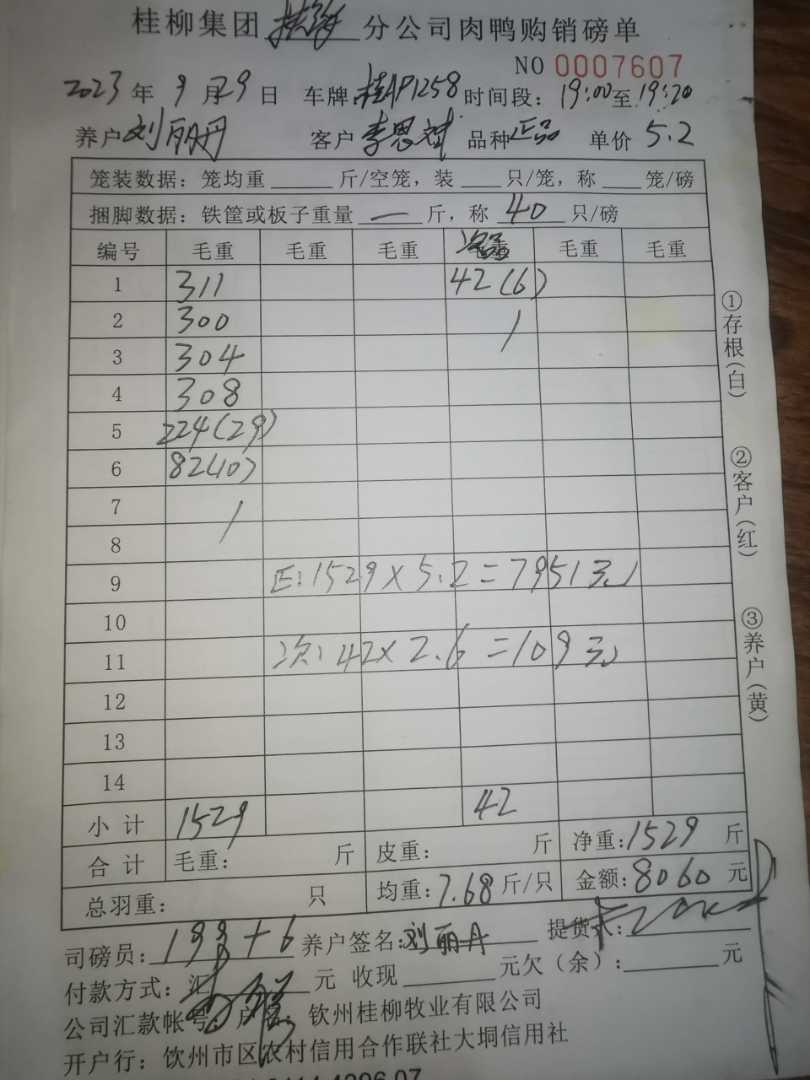 桂柳集团 分公司肉鸭购销磅单
NO 0007607
2023年9月29日 车牌桂AP1258时间段：19:00至19:20
养户刘丽丹 客户李思斌 品种正品 单价5.2
笼装数据：笼均重 斤/空笼，装 只/笼，称 笼/磅
捆脚数据：铁筐或板子重量 — 斤，称 40 只/磅
编号 毛重 毛重 毛重 毛重 毛重
1 311 42(6)
2 300 /
3 304
4 308
5 224(29)
6 82(10)
7 /
8
9 正:1529×5.2=7951元
10
11 次:42×2.6=109元
12
13
14
小计 1529 42
合计 毛重： 斤 皮重： 斤 净重:1529 斤
总羽重： 只 均重:7.68斤/只 金额:8060元
司磅员:199+6 养户签名:刘丽丹 提货人:
付款方式：汇 元 收现 元欠（余）: 元
公司汇款帐号 户 钦州桂柳牧业有限公司
开户行：饮州市区农村信用合作联社大垌信用社
①存根(白)
②客户(红)
③养户(黄)